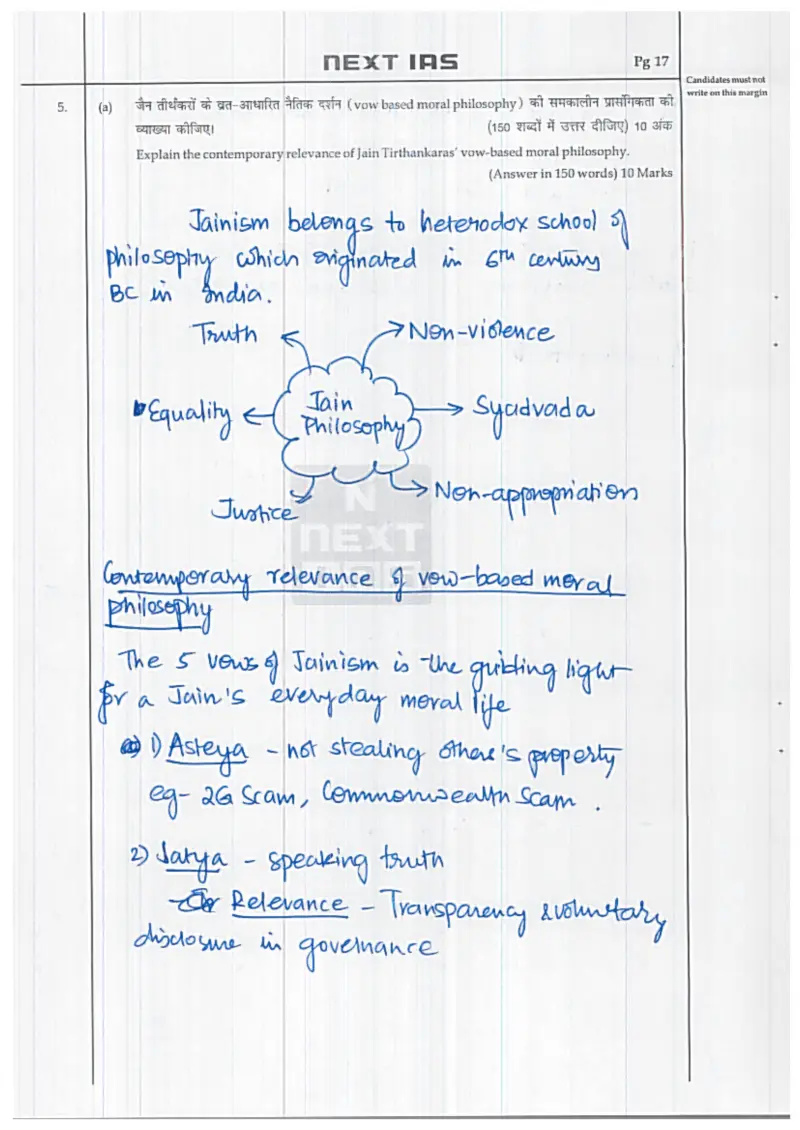 NEXT IAS
Pg 17
Candidates must not
write on this margin
5. (a) जैन तीर्थंकरों के व्रत-आधारित नैतिक दर्शन (vow based moral philosophy) की समकालीन प्रासंगिकता की
व्याख्या कीजिए। (150 शब्दों में उत्तर दीजिए) 10 अंक
Explain the contemporary relevance of Jain Tirthankaras' vow-based moral philosophy.
(Answer in 150 words) 10 Marks
Jainism belongs to heterodox school of
philosophy which originated in 6th century
BC in India.
Truth
Non-violence
Equality
Jain
Philosophy
Syadvada
Non-appropriation
Justice
N
NEXT
IAS
Contemporary relevance of vow-based moral
philosophy
The 5 vows of Jainism is the guiding light
for a Jain's everyday moral life
1) Asteya - not stealing other's property
eg- 2G Scam, Commonwealth Scam.
2) Satya - speaking truth
Relevance - Transparency & voluntary
disclosure in governance